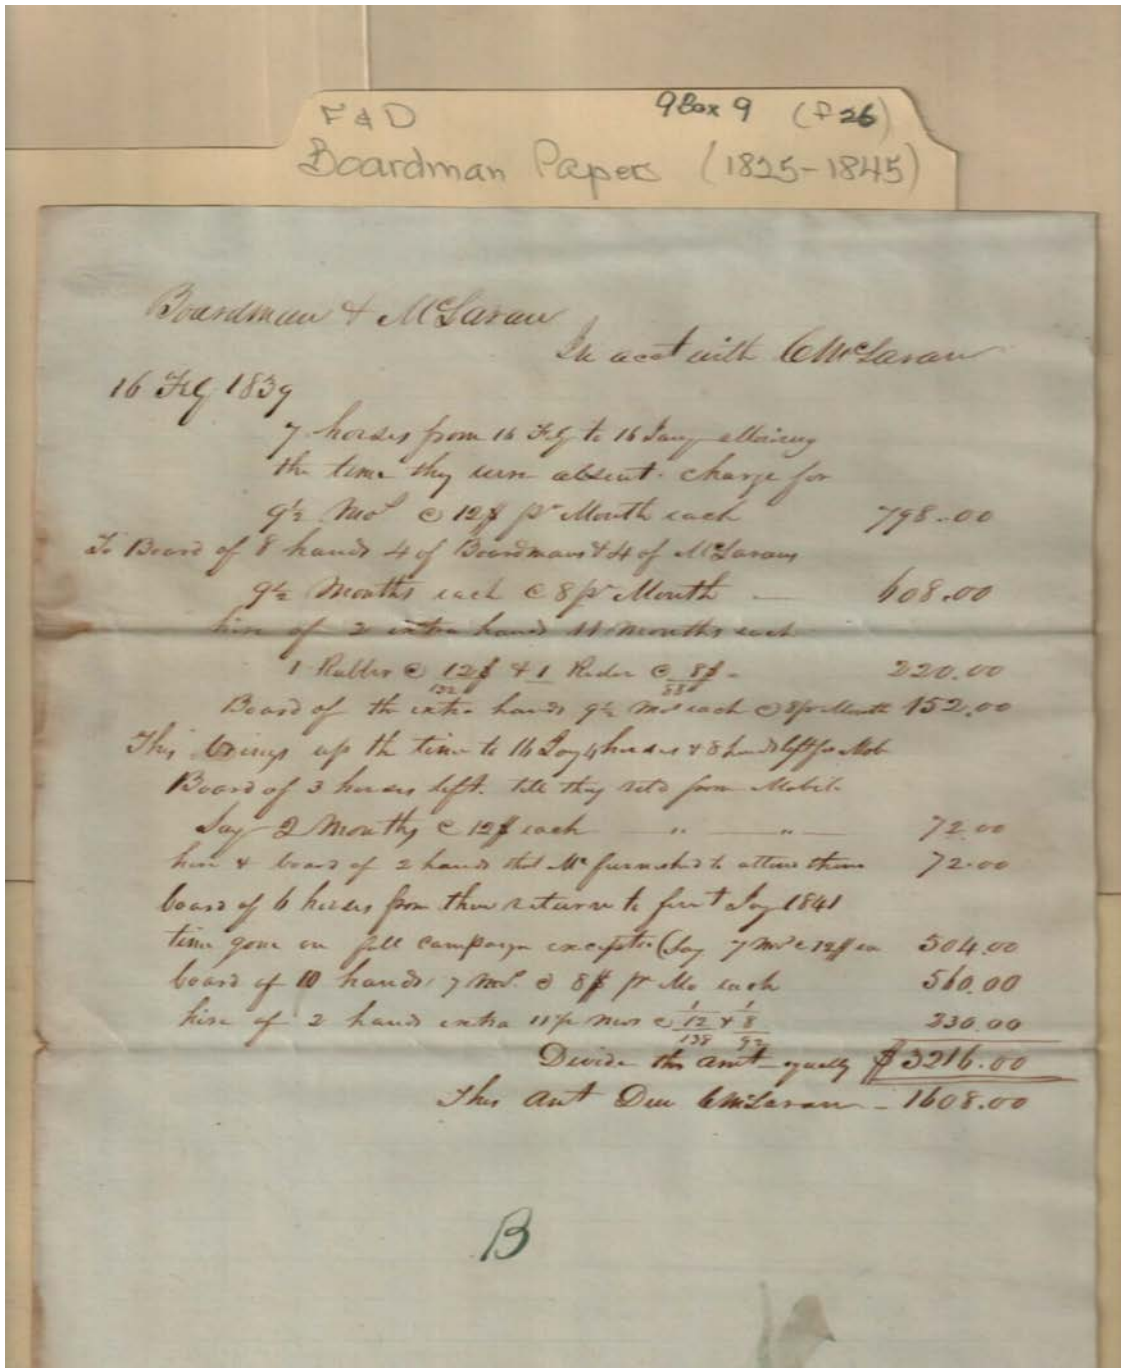 F & D 9Box 9 (f 26)
Boardman Papers (1825-1845)
Boardman & McLaran
In acct with CMcLaran
16 Feby 1839
7 horses from 16 Feby to 16 Jany allowing
the time they were absent. charge for
9½ Mos @ 12$ pr Month each 798.00
To Board of 8 hands 4 of Boardmans & 4 of McLarans
9½ Months each @ 8 pr Month 608.00
hire of 2 extra hands 11 months each
1 Rubber @ 12$ & 1 Rider @ 8$ - 220.00
132 88
Board of the extra hands 9½ mos each @ 8 pr Month 152.00
This brings up the time to 16 Jay 4 horses & 8 hands left for Mob
Board of 3 horses left. till they retd from Mobile
Say 2 Months @ 12$ each " " 72.00
hire & board of 2 hands that Mc furnished to attend them 72.00
board of 6 horses from their return to first Jay 1841
time gone on fall campaign excepted (Say 7 mos @ 12$ ea 504.00
board of 10 hands 7 mos. @ 8$ pr Mo each 560.00
hire of 2 hands extra 11½ mos @ 12 & 8 230.00
138 92
Divide this amt equally $3216.00
This amt Due CMcLaran - 1608.00
B